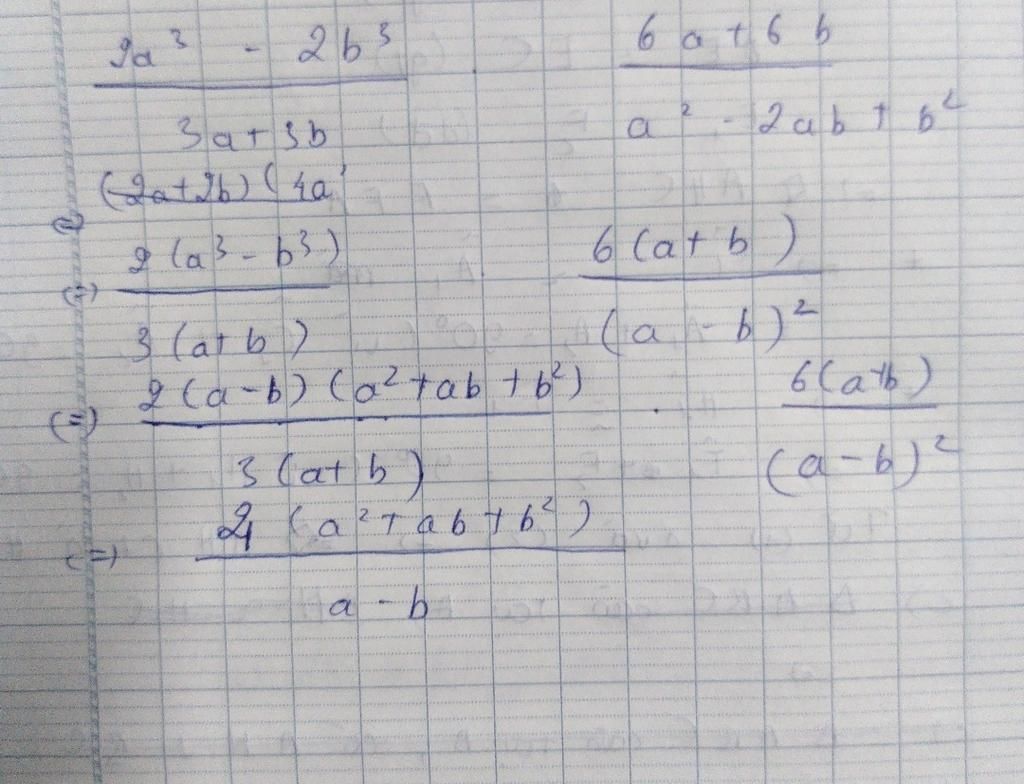 2a³ - 2b³ . 6a + 6b
3a + 3b a² - 2ab + b²
(=) (2a+2b) (4a
(=) 2(a³ - b³) 6(a + b)
3(a + b) (a - b)²
(=) 2(a - b)(a² + ab + b²) . 6(a+b)
3(a + b) (a - b)²
(=) 4(a² + ab + b²)
a - b